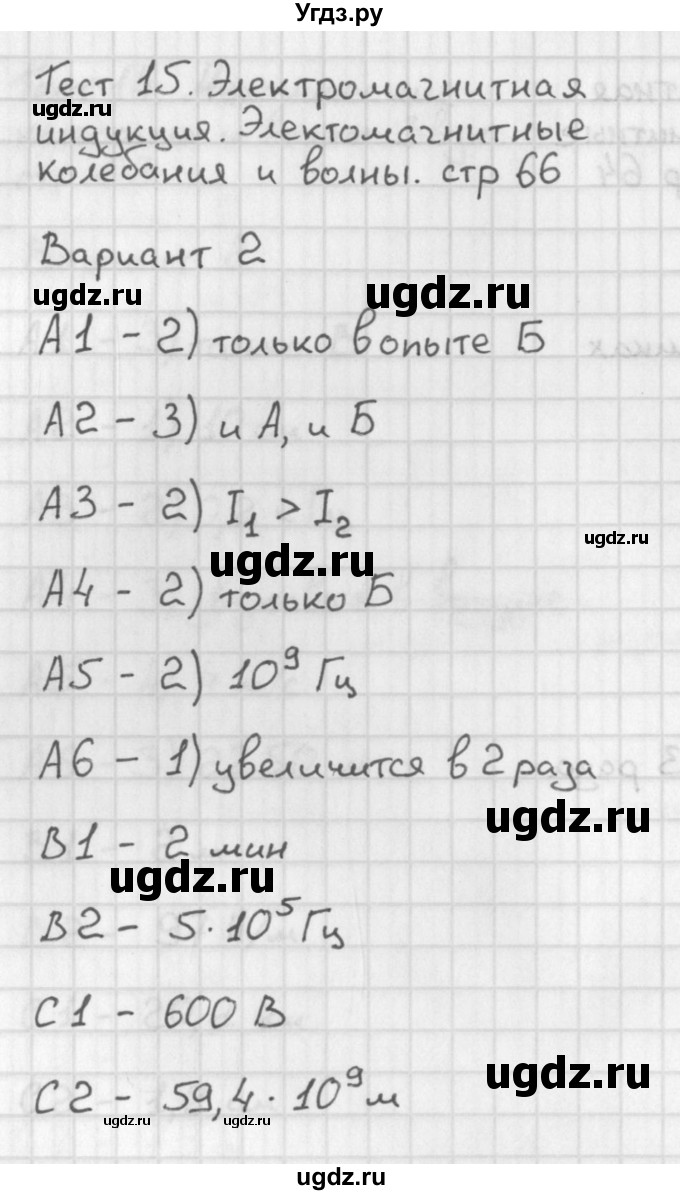 Угдз.ру
Тест 15. Электромагнитная
ugdz.ru
индукция. Электомагнитные
колебания и волны. стр 66
Вариант 2
ugdz.ru
ugdz.ru
А1 - 2) только в опыте Б
А2 - 3) и А, и Б
А3 - 2) I₁ > I₂
ugdz.ru
ugdz.ru
А4 - 2) только Б
А5 - 2) 10⁹ Гц
А6 - 1) увеличится в 2 раза
ugdz.ru
В1 - 2 мин
ugdz.ru
В2 - 5·10⁵ Гц
С1 - 600 В
ugdz.ru
С2 - 59,4·10⁹ м
ugdz.ru
ugdz.ru
ugdz.ru